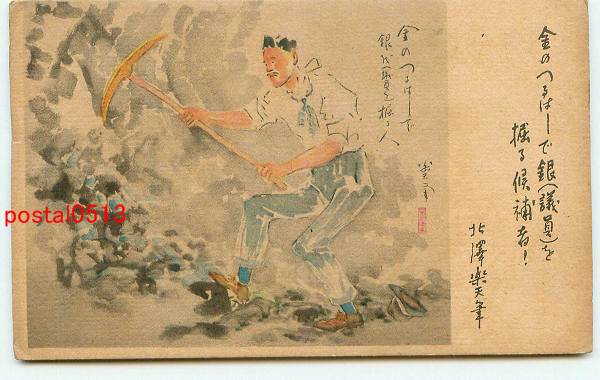 金のつるはしで銀(議員)を
掘る候補者!
北澤楽天筆
金のつるはしで
銀(議員)を掘る人
postal0513